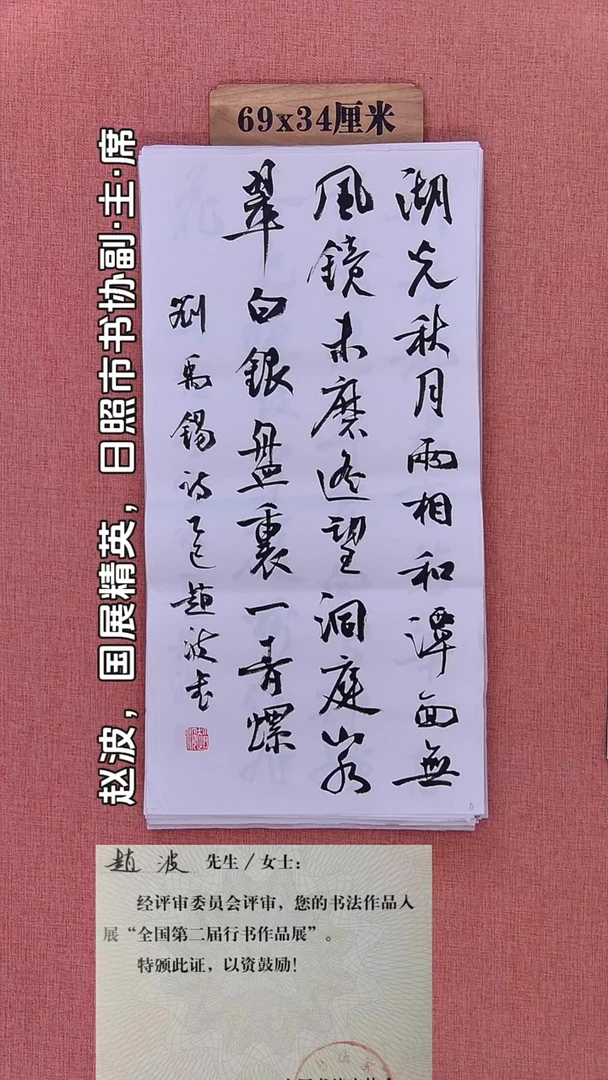 69x34厘米
湖光秋月兩相和潭面無
風鏡未磨遙望洞庭山水
翠白銀盤裏一青螺
劉禹錫詩乙巳趙波書
赵波，国展精英，日照市书协副·主·席
趙波 先生/女士：
经评审委员会评审，您的书法作品入
展“全国第二届行书作品展”。
特颁此证，以资鼓励！